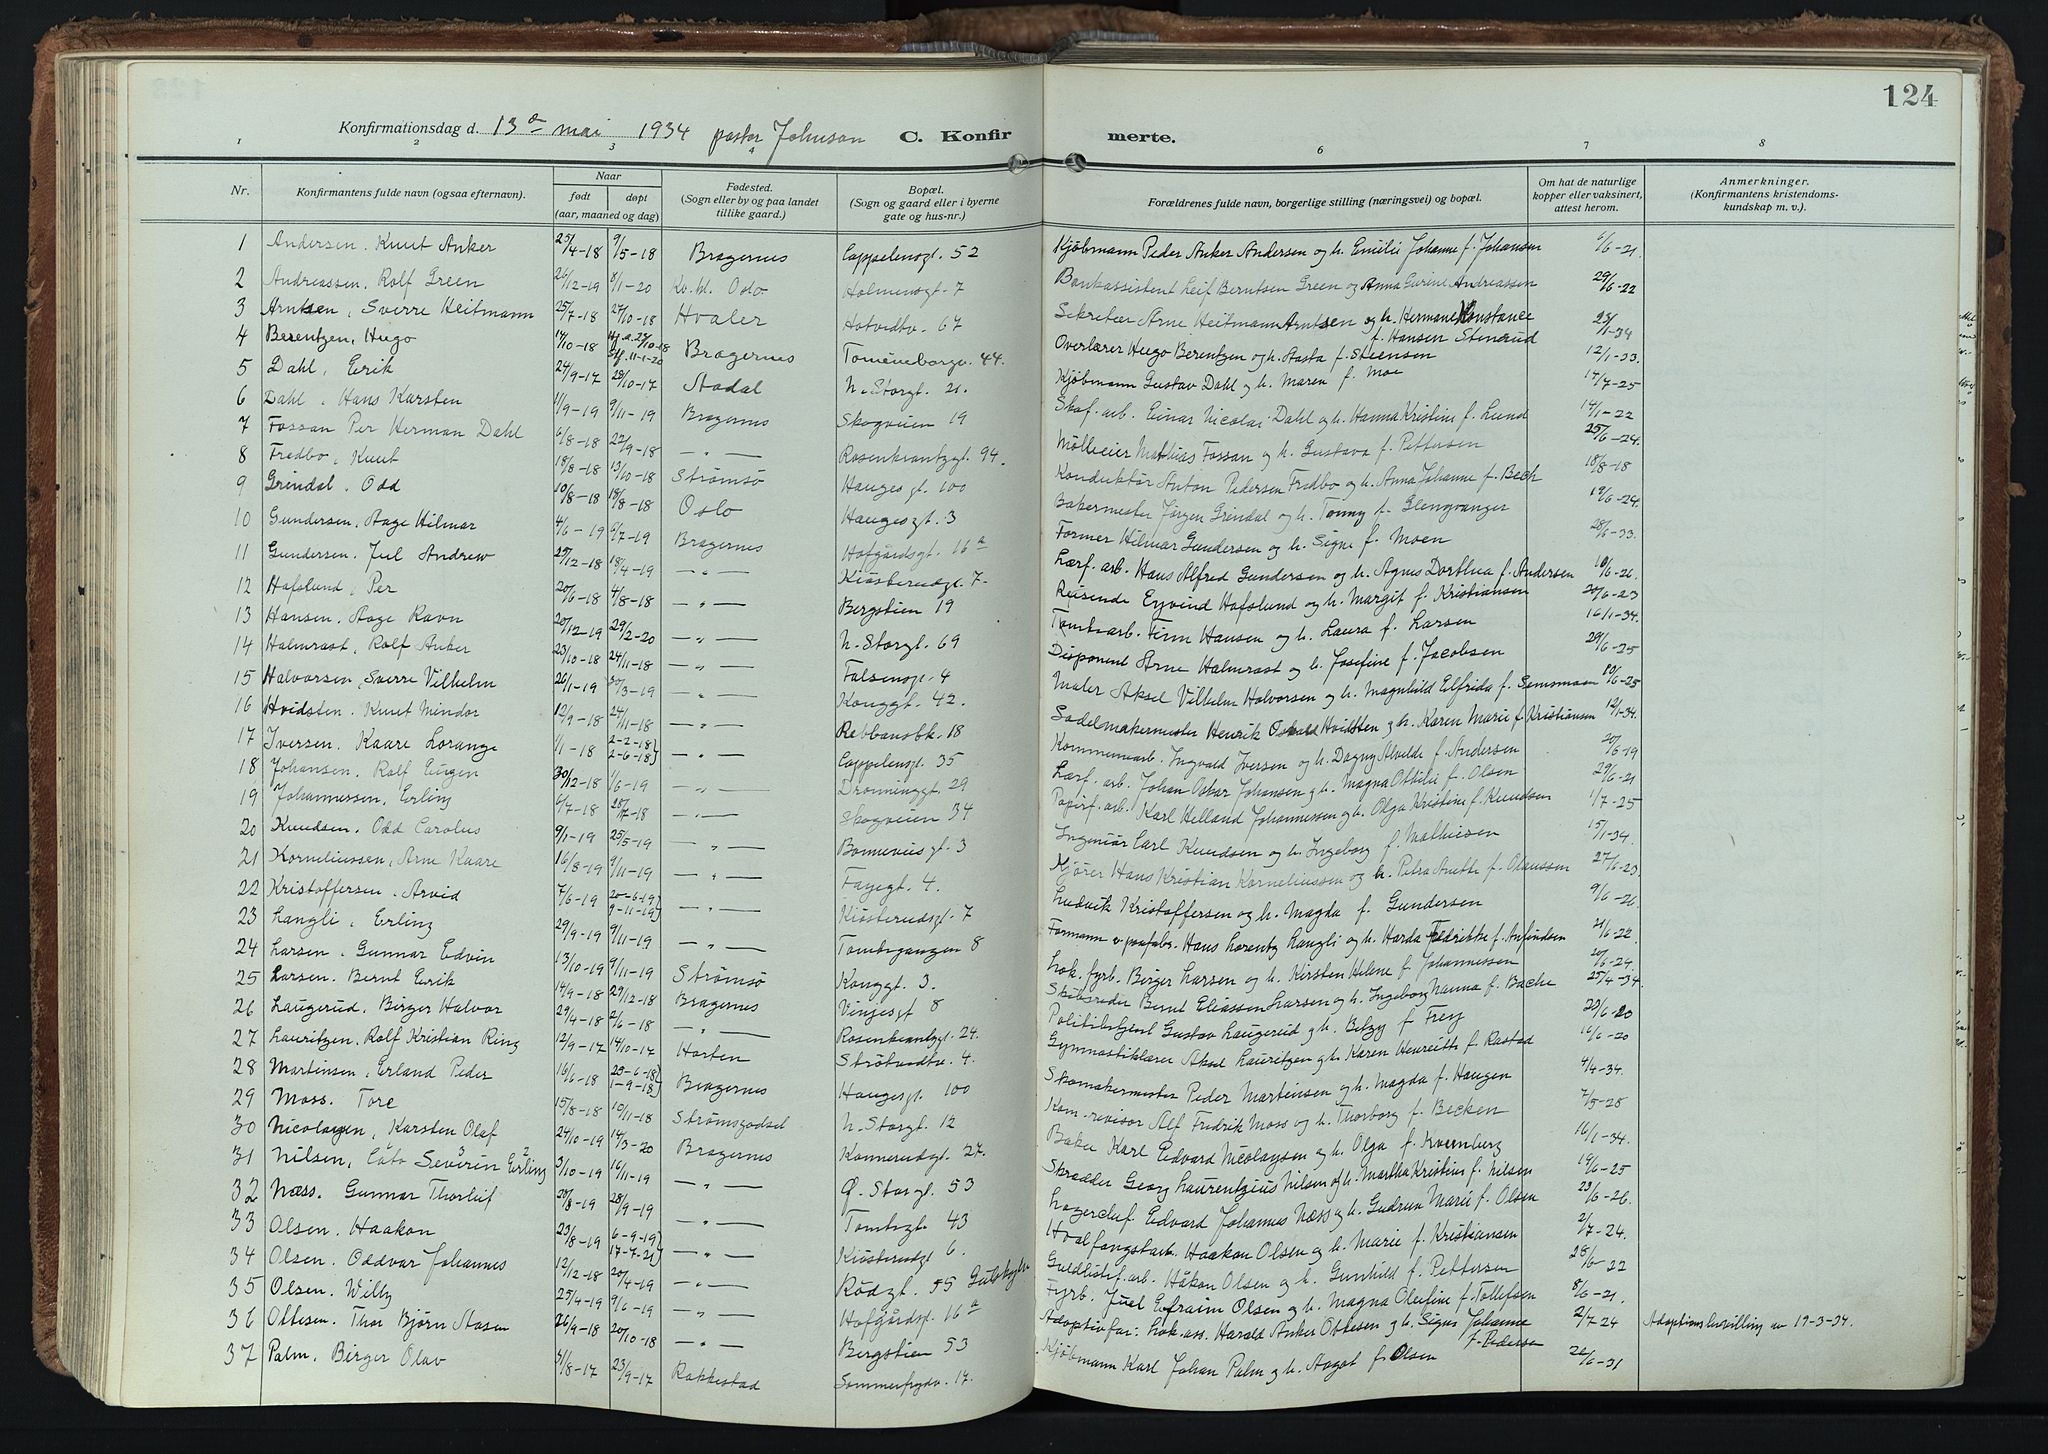 124
Konfirmationsdag d. 13de mai 1934 pastor Johnson C. Konfirmerte.
1 2 3 4 6 7 8
Nr. Konfirmantens fulde navn (ogsaa efternavn). Naar født døpt (aar, maaned og dag) Fødested. (Sogn eller by og paa landet tillike gaard.) Bopæl. (Sogn og gaard eller i byerne gate og hus-nr.) Forældrenes fulde navn, borgerlige stilling (næringsvei) og bopæl. Om hat de naturlige kopper eller vaksinert, attest herom. Anmerkninger. (Konfirmantens kristendomskundskap m. v.).
1 Andersen. Knut Anker 25/4-18 9/5-18 Bragernes Cappelensgt. 52 Kjøbmann Peder Anker Andersen og h. Emilie Johanne f. Johansen 6/6-21
2 Andreassen. Rolf Green 26/12-19 8/1-20 Kv. kl. Oslo Holmensgt. 7 Bankassistent Leif Berntsen Green og Anna Gurine Andreassen 29/6-22
3 Arntsen, Sverre Heitmann 25/7-18 27/10-18 Hvaler Hotvidtv. 67 Sekretær Arne Heitmann Arntsen og h. Hermane Konstance f. Hansen Stenrud 23/1-34
4 Berentzen, Hugo 17/10-18 Hj.d. 23/10-18 Stf. 11-1-20 Bragernes Tomineborgv. 44. Overlærer Hugo Berentzen og h. Aasta f. Steensen 12/1-33.
5 Dahl, Erik 24/9-17 28/10-17 Aadal N. Storgt. 21. Kjøbmann Gustav Dahl og h. Maren f. Moe 15/7-25
6 Dahl, Hans Karsten 11/9-19 9/11-19 Bragernes Skogveien 19 Skof. arb. Einar Nicolai Dahl og h. Hanna Kristine f. Lund 14/1-22
7 Fossan Per Herman Dahl 6/8-18 22/9-18 — " — Rosenkrantzgt. 94. Mölleeier Mathias Fossan og h. Gustava f. Pettersen 25/6-24.
8 Fredbo, Knut 18/8-18 13/10-18 Strømsø Haugesgt. 100 Konduktör Anton Pedersen Fredbo og h. Anna Johanne f. Bech 18/8-18
9 Grindal. Odd 10/8-18 18/8-18 Oslo Haugesgt. 3 Bakermester Jörgen Grindal og h. Tonny f. Glengvanger 19/6-24.
10 Gundersen. Aage Hilmar 4/6-19 6/7-19 Bragernes Hofgårdsgt. 16a Former Hilmar Gundersen og h. Signe f. Moen 28/6-33.
11 Gundersen. Jul Andrew 25/12-18 18/4-19 — " — Kiøsterudgt. 7. Lærf. arb. Hans Alfred Gundersen og h. Agnes Dorthea f. Andersen 10/6-26.
12 Hafslund, Per 20/6-18 4/8-18 — " — Bergstien 19 Reisende Eyvind Hafslund og h. Margit f. Kristiansen 20/6-23
13 Hansen. Aage Ravn 20/12-19 29/2-20 — " — N. Storgt. 69 Tomtearb. Finn Hansen og h. Laura f. Larsen 16/1-34.
14 Halmrast, Rolf Anker 23/10-18 24/11-18 — " — Falsensgt. 4 Disponent Arne Halmrast og h. Josefine f. Jacobsen 29/6-25
15 Halvorsen, Sverre Vilhelm 26/1-19 30/3-19 — " — Konggt. 42. Maler Aksel Vilhelm Halvorsen og h. Magnhild Elfrida f. Semsmoen 10/6-25
16 Hvidsten. Knut Mindor 12/9-18 24/11-18 — " — Rebbansbk. 18 Sadelmakermester Henrik Oskald Hvidsten og h. Karen Marie f. Kristiansen 12/1-34.
17 Iversen. Kaare Lorange 1/1-18 2-2-18} 2-6-18} — " — Cappelensgt. 35 Kommunearb. Ingvald Iversen og h. Dagny Alvilde f. Andersen 20/6-19
18 Johansen. Rolf Eugen 30/12-18 1/6-19 — " — Dronninggt. 29 Lærf. arb. Johan Oskar Johansen og h. Magna Ottilie f. Olsen 29/6-21
19 Johannessen, Erling 6/7-18 28/7-18 — " — Skogveien 34 Papirf. arb. Karl Helland Johannessen og h. Olga Kristine f. Knudsen 1/7-25
20 Knudsen. Odd Carolus 9/1-19 25/5-19 — " — Bonneviesgt. 3 Ingeniör Carl Knudsen og h. Ingeborg f. Mathiesen 15/1-34.
21 Korneliussen, Arne Kaare 16/8-19 9/11-19 — " — Fayegt. 4. Kjörer Hans Kristian Korneliussen og h. Petra Anette f. Olaussen 27/6-23.
22 Kristoffersen. Arvid 7/6-19 20-6-19} 9-11-19} — " — Kiøsterudgt. 7 Ludvik Kristoffersen og h. Magda f. Gundersen 9/6-26
23 Langli, Erling 29/9-19 9/11-19 — " — Tomtegangen 8 Formann v. Hans Lorentz Langli og h. Harda Fredrikke f. Anfindsen 21/6-22.
24 Larsen. Gunnar Edvin 13/10-19 9/11-19 Strømsø Konggt. 3. Lok. fyrb. Birger Larsen og h. Kirsten Helene f. Johannessen 20/6-24
25 Larsen. Bernt Erik 14/9-18 29/12-18 Bragernes Vinjesgt 8 Skibsreder Bernt Eliassen Larsen og h. Ingeborg Nanna f. Bache 25/4-34.
26 Laugerud, Birger Halvor 29/4-18 2/6-18 — " — Rosenkrantzgt. 24. Politibetjent Gustav Laugerud og h. Betzy f. Frey 23/6-20
27 Lauritzen. Rolf Kristian Ring 12/9-17 14/10-17 Horten Strøtvedtv. 4. Gymnastiklærer Aksel Lauritzen og h. Karen Henriette f. Rastad 16/6-20
28 Martinsen, Erland Peder 16/6-18 23-6-18} 1-9-18} Bragernes Haugesgt. 100 Skomakermester Peder Martinsen og h. Magda f. Haugen 4/4-34.
29 Moss. Tore 15/8-18 10/11-18 Strømsgodset N. Storgt. 12 Kom. revisor Alf Fredrik Moss og h. Thorborg f. Becken 7/5-28
30 Nicolaysen, Karsten Olaf 24/10-19 14/3-20 Bragernes Konnerudgt. 27. Baker Karl Edvard Nicolaysen og h. Olga f. Kvernberg 16/1-34.
31 Nilsen, Cato Severin 3 Erling 2 3/10-19 16/11-19 — " — Ø. Storgt. 53 Skredder Georg Laurentzius Nilsen og h. Martha Kristine f. Nilsen 19/6-25
32 Næss. Gunnar Thorleif 20/8-19 28/9-19 — " — Tomtegt. 43 Lagerchef Edvard Johannes Næss og h. Gudrun Marie f. Olsen 23/6-26.
33 Olsen. Haakon 23/8-19 6-9-19} 17-7-21} — " — Kiøsterudgt 6. Hvalfangstarb. Haakon Olsen og h. Marie f. Kristiansen 2/7-24.
34 Olsen. Oddvar Johannes 12/12-18 20/4-19 — " — Rødgt. 55 Gulskogen Guldlistef. arb. Håkon Olsen og h. Gunhild f. Pettersen 28/6-22
35 Olsen. Willy 25/4-19 9/6-19 — " — Hofgårdsgt. 16a Fyrb. Juel Efraim Olsen og h. Magna Olefine f. Tollefsen 8/6-21.
36 Ottesen. Thor Bjørn Aasen 26/9-18 20/10-18 — " — Bergstien 53 Adoptivfar: Lok. ass. Harald Anker Ottesen og h. Signe Johanne f. Pedersen 2/7-24 Adoptionsbevilling av 19-3-34.
37 Palm. Birger Olav 31/8-17 23/9-17 Rakkestad Sommerfrydv. 17. Kjøbmann Karl Johan Palm og h. Aagot f. Olsen 26/6-31